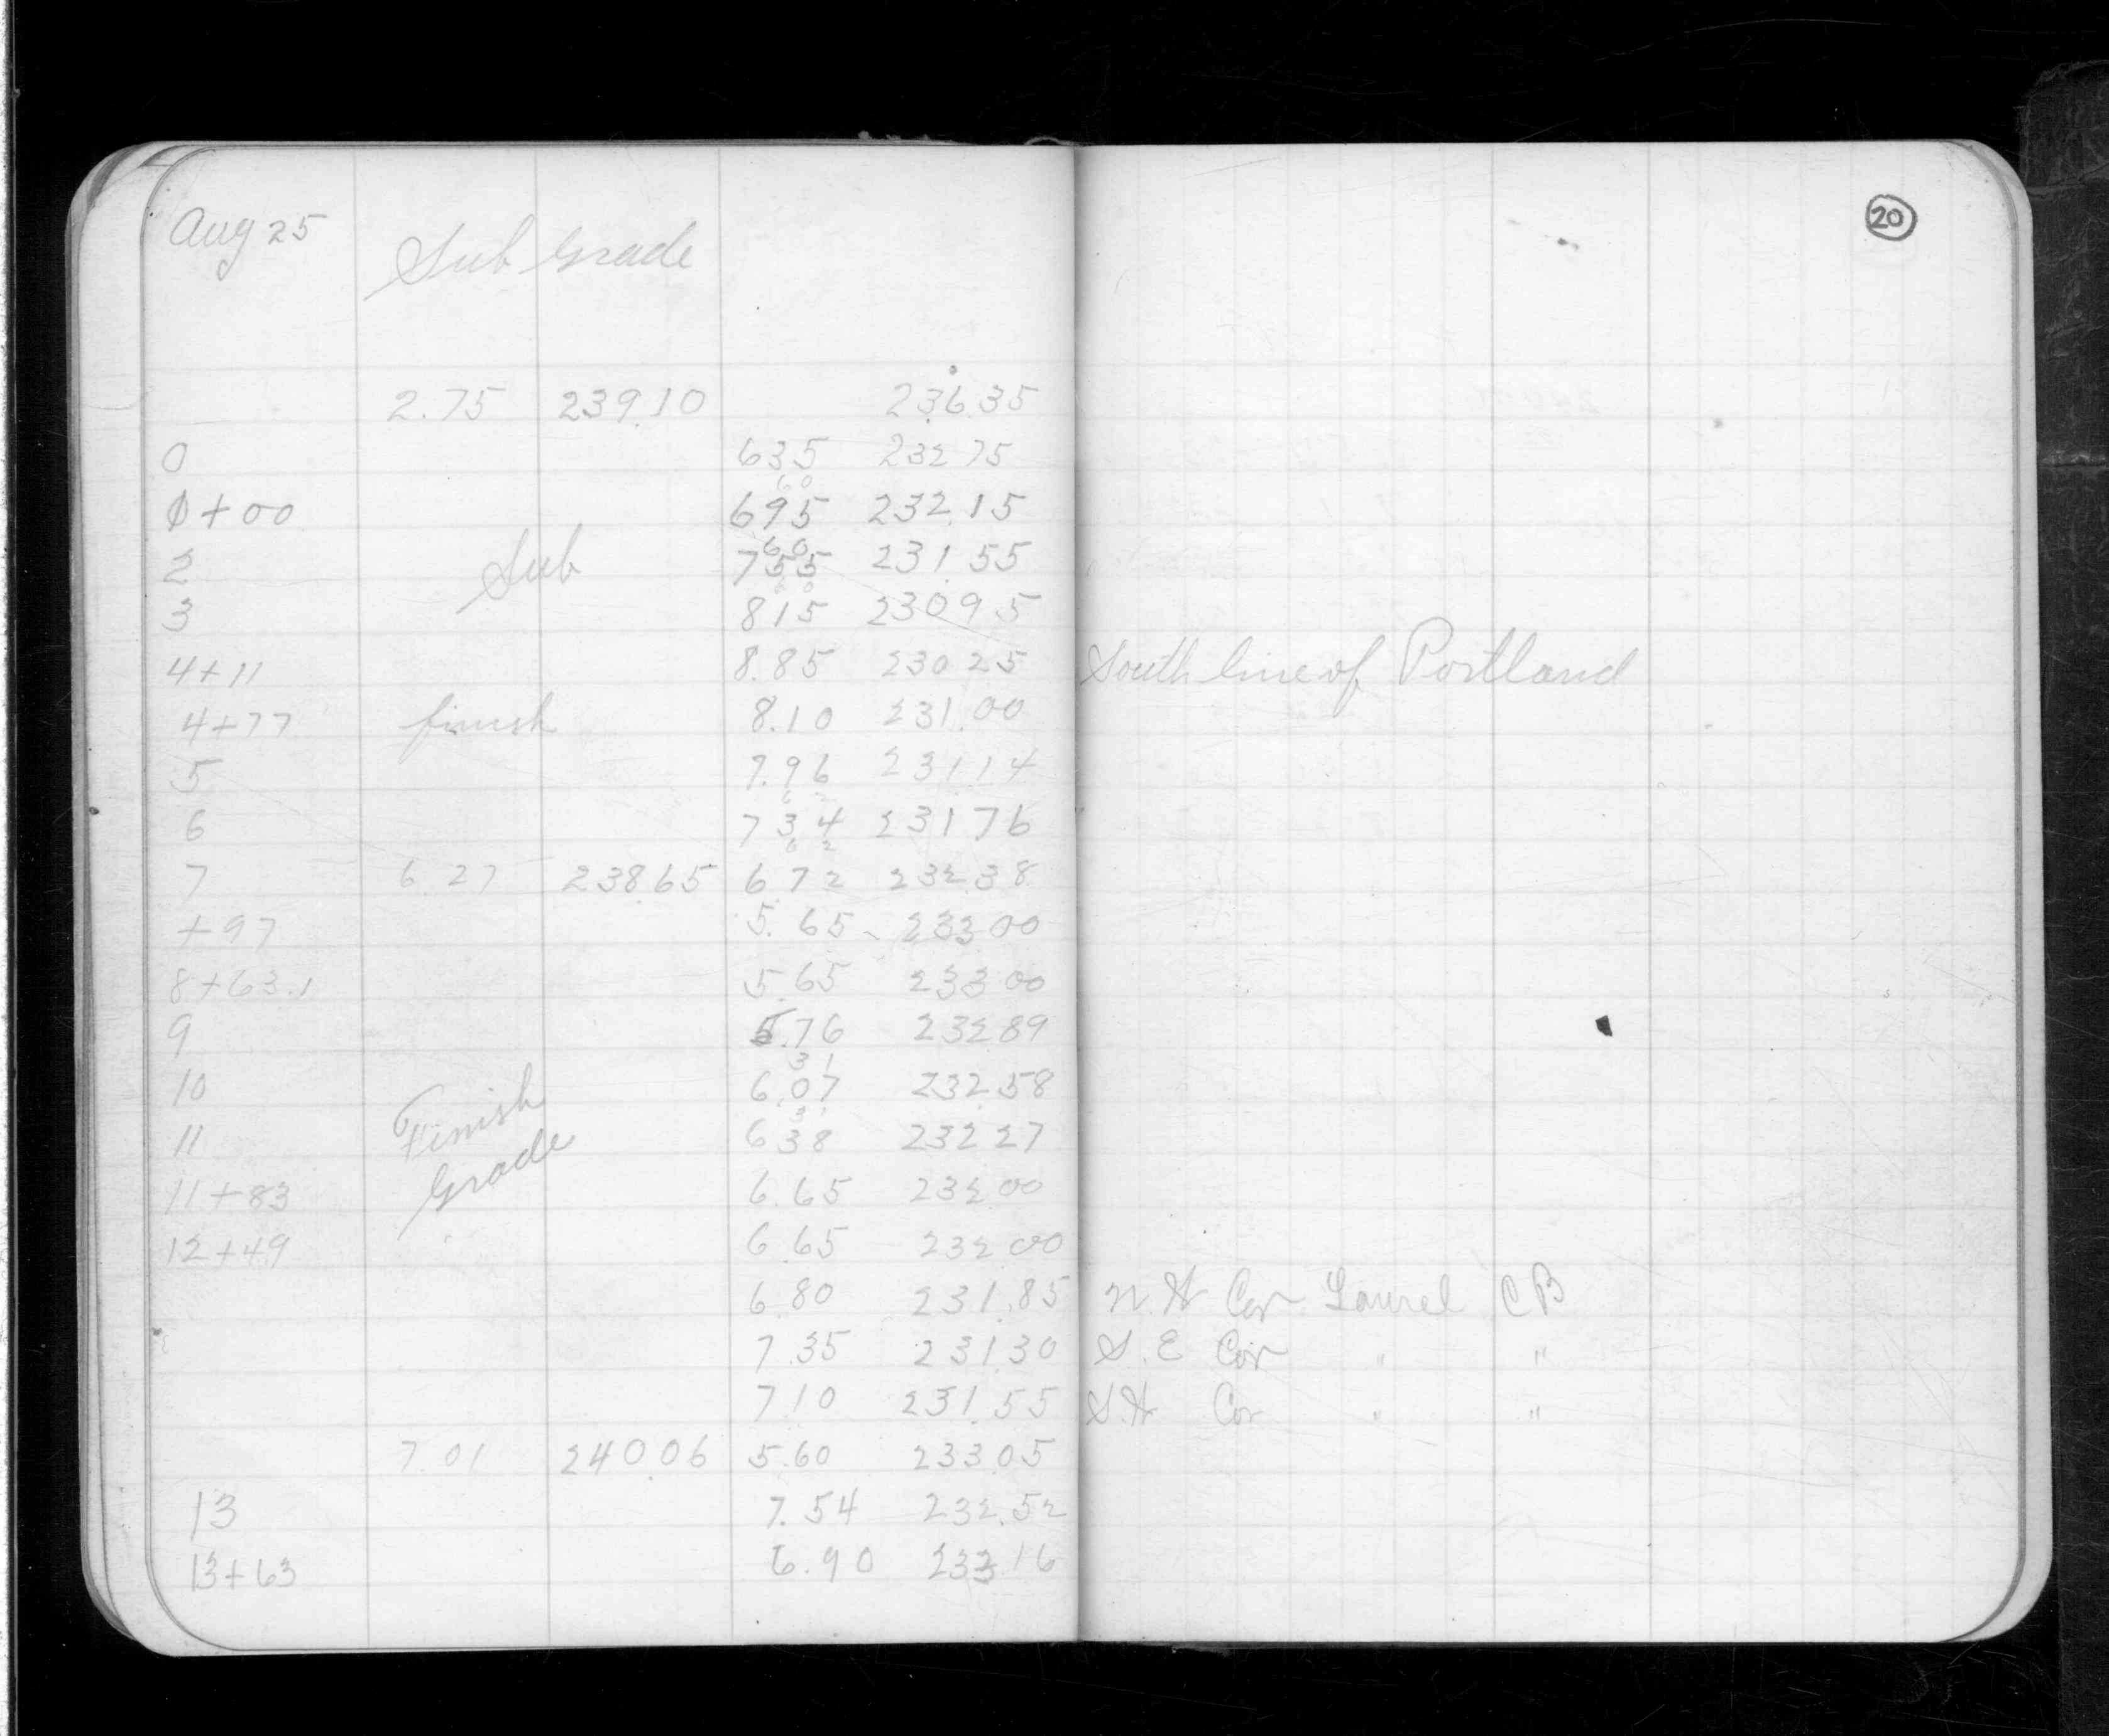 20
Aug 25 Sub Grade
2.75 239.10 236.35
0 635 232 75
60
0+00 695 232.15
60
2 Sub 755 231.55
60
3 815 230 95
4+11 8.85 230 25 South line of Portland
4+77 finish 8.10 231.00
5 7.96 231 14
6 2
6 7 3 4 231 76
6 2
7 6.27 238.65 6.72 232.38
+97 5.65 233 00
8+63.1 5.65 233 00
9 5.76 232 89
31
10 Finish 6.07 232.58
31
11 Grade 6 38 232 27
11+83 6.65 232.00
12+49 " 6 65 232.00
6.80 231.85 N.W Cor Laurel CB
7.35 231.30 S.E Cor " "
7.10 231.55 S.W Cor " "
7.01 240.06 5.60 233.05
13 7.54 232.52
13+63 6.90 233 16